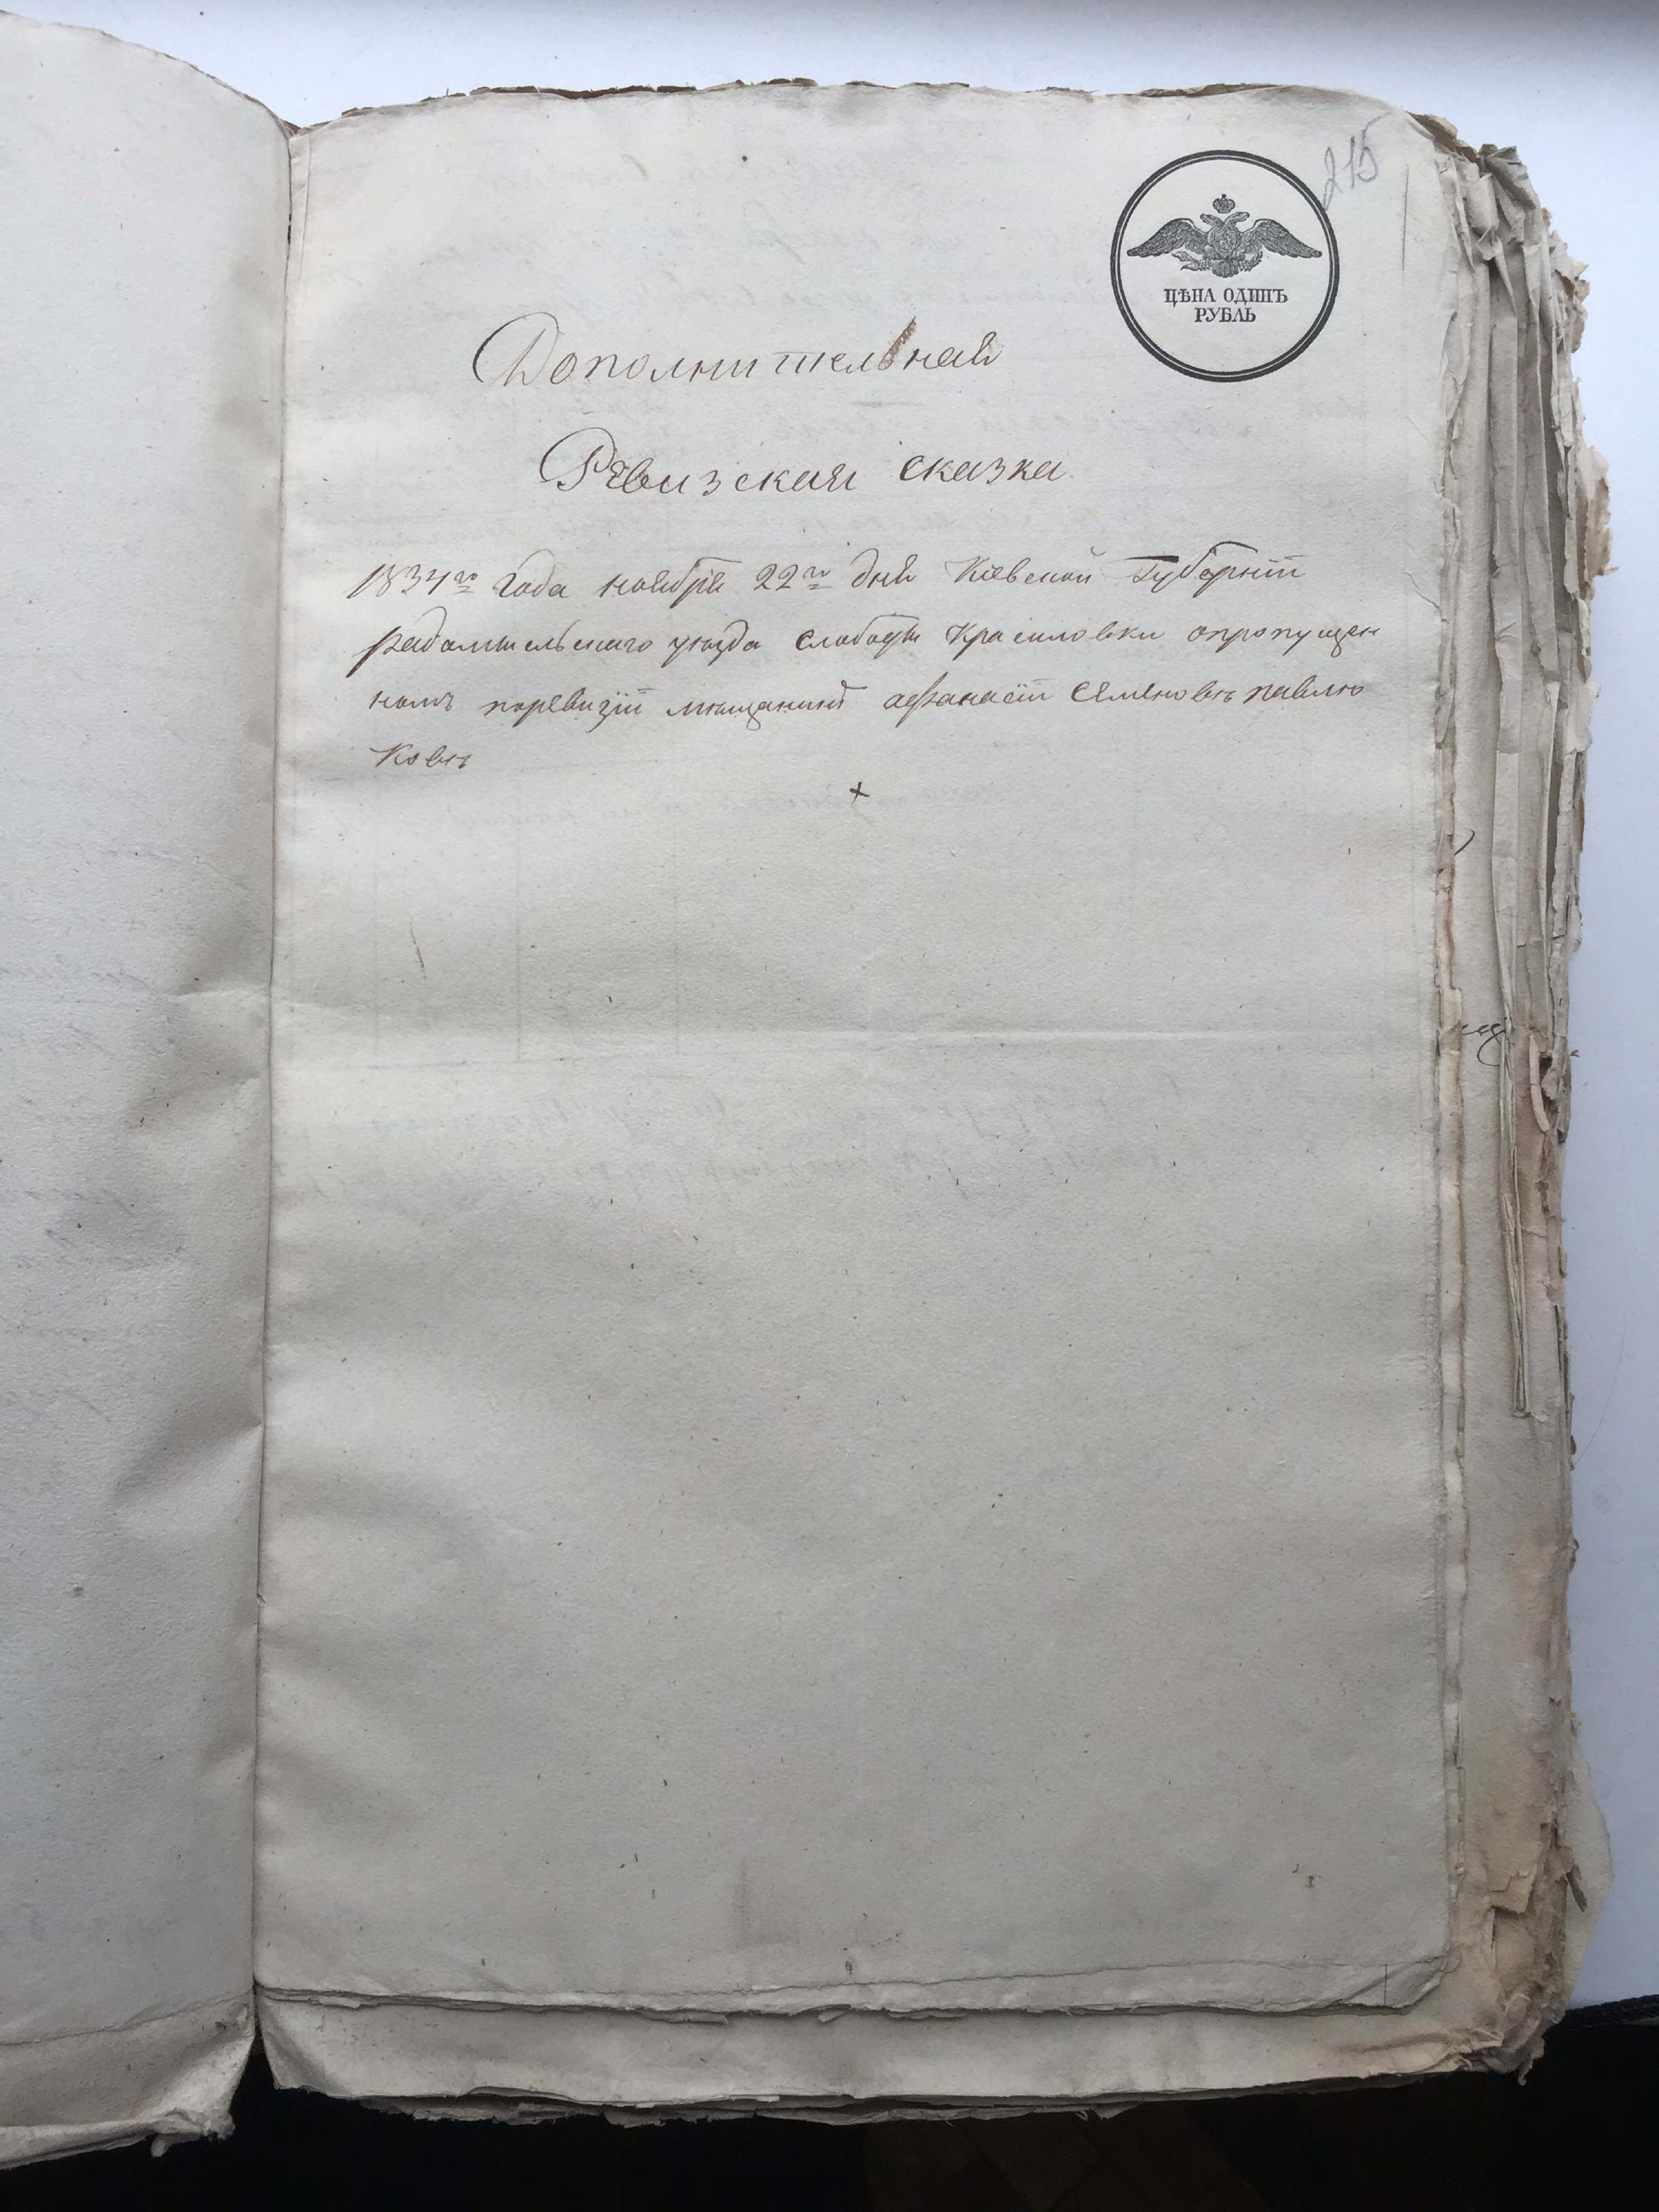 215
ЦѢНА ОДИНЪ
РУБЛЬ
Дополнительная
Ревизская сказка
1834го года ноября 22го дня Кіевской Губерніи
радомысльскаго уѣзда слободы Красиловки опропущен
номъ поревизіи мѣщанинѣ афанасіи Семеновѣ павлю
ковѣ